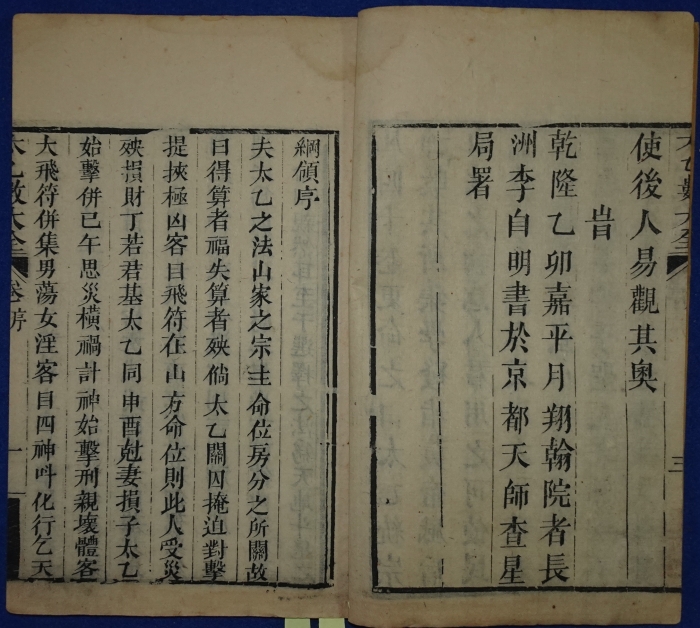 使後人易觀其奧
旹
乾隆乙卯嘉平月翔翰院者長
洲李自明書於京都天師查星
局署
三
綱領序
夫太乙之法山家之宗主命位房分之所關故
曰得算者福失算者殃倘太乙關囚掩迫對擊
提挾極凶客目飛符在山方命位則此人受災
殃損財丁若君基太乙同申酉尅妻損子太乙
始擊併巳午思災橫禍計神始擊刑親壞體客
大飛符併集男蕩女淫客目四神呌化行乞天
太乙數大全
卷序
一